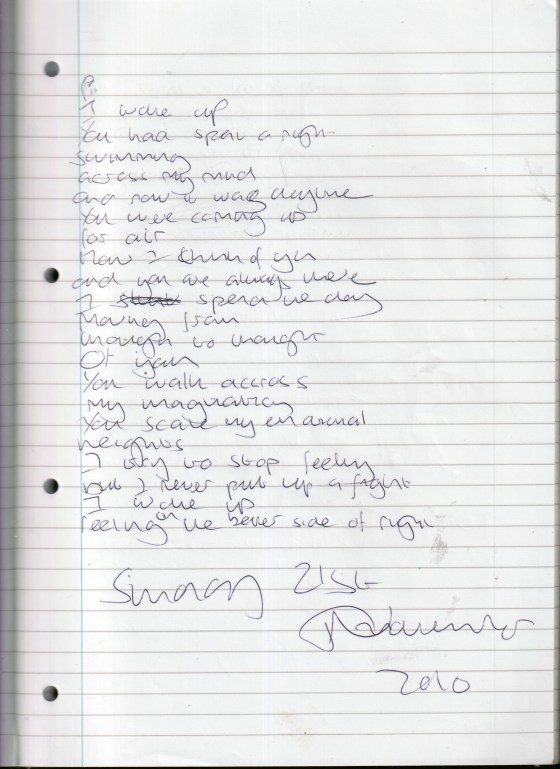 I woke up
You had spent a night
swimming
across my mind
and now it was daytime
You were coming up
for air
Now I think of you
and you are always there
I spend the day
Moving from
thought to thought
Of you
You walk accross
My imagination
You scale my emotional
heights
I try to stop feeling
but I never put up a fight
I woke up
feeling on the better side of right
Sunday 21st
2010